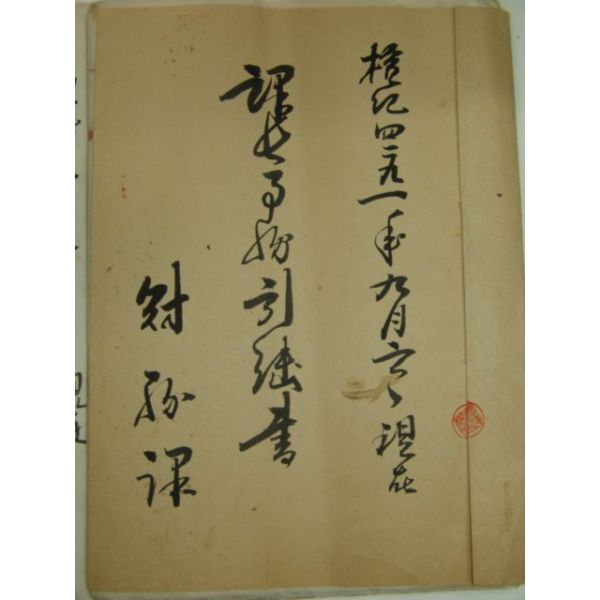 檀紀四二九一年九月六日 現在
課長事務引継書
財務課